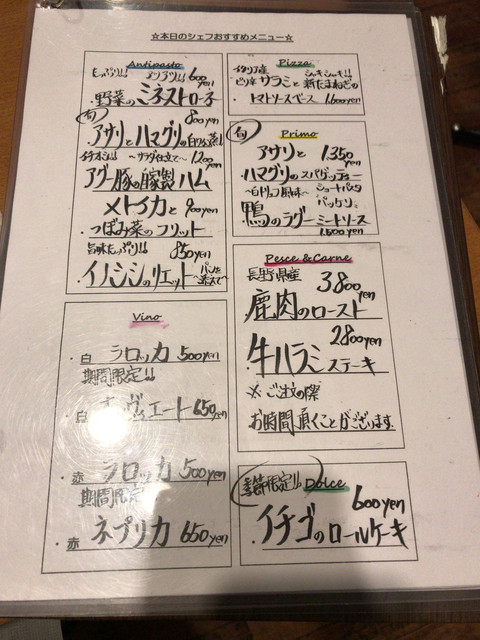 ☆本日のシェフおすすめメニュー☆
Antipasto
たっぷり!! 600yen
野菜のミネストローネ
旬 800yen
アサリとハマグリの白ワイン蒸し
イチオシ!! 〜サラダ仕立て〜 1200yen
アグー豚の自家製ハム
メトイカと 900yen
つぼみ菜のフリット
旨味たっぷり!! 850yen
イノシシのリエット 〜パンを添えて〜
Vino
・白 ラロッカ 500yen
期間限定!!
・白 ヴィエート 650yen
・赤 ラロッカ 500yen
期間限定
・赤 ネプリカ 650yen
Pizza
イタリア産 シャキシャキ!!
ピリ辛サラミと新たまねぎの
トマトソースベース 1,600yen
旬 Primo
アサリと 1,350yen
ハマグリのスパゲッティー
〜白トリュフ風味〜 ショートパスタ
パッケリ
鴨のラグーミートソース
1,500yen
Pesce & Carne
長野県産 3800yen
鹿肉のロースト
2800yen
牛ハラミステーキ
※ご注文の際
お時間頂くことがございます。
季節限定!! Dolce
600yen
イチゴのロールケーキ